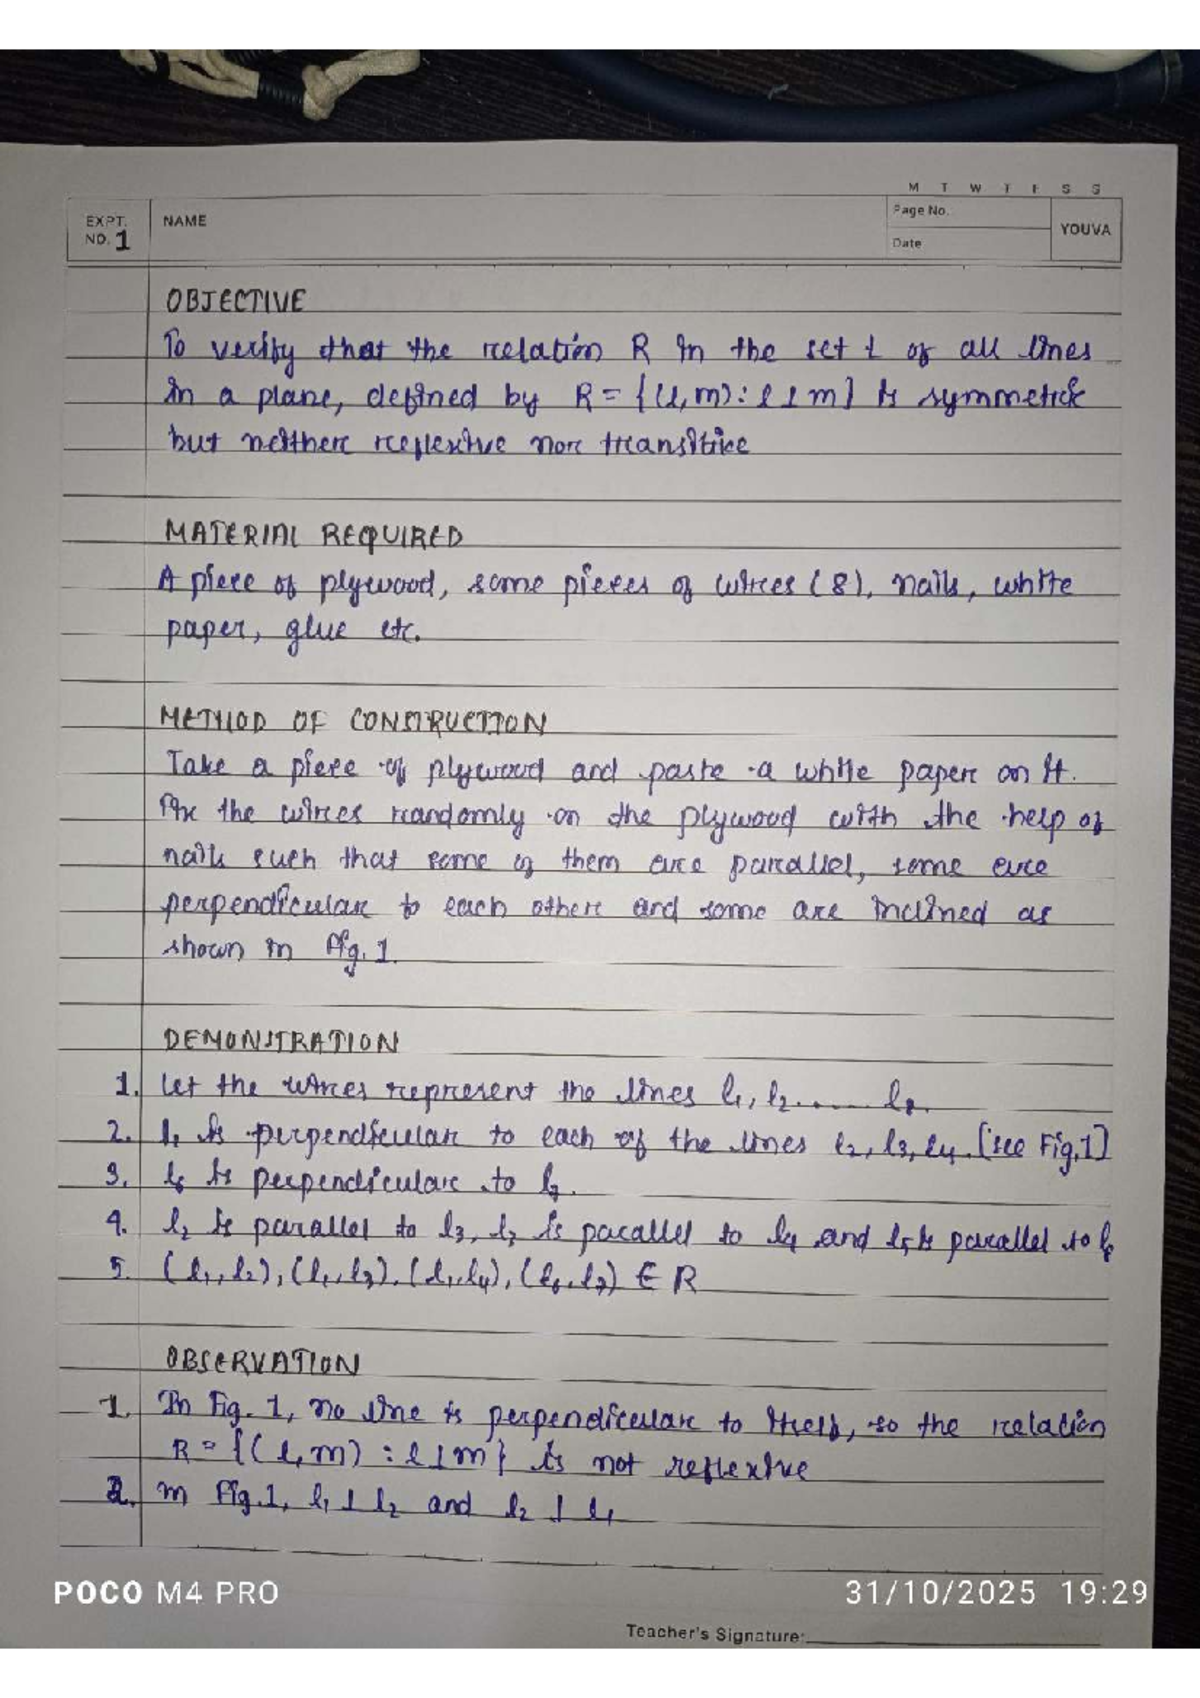 M T W T F S S
EXPT. NO. 1 NAME Page No. YOUVA
Date
OBJECTIVE
To verify that the relation R in the set L of all lines
in a plane, defined by R = {(l, m) : l ⊥ m} is symmetric
but neither reflexive nor transitive
MATERIAL REQUIRED
A piece of plywood, some pieces of wires (8), nails, white
paper, glue etc.
METHOD OF CONSTRUCTION
Take a piece of plywood and paste a white paper on it.
Fix the wires randomly on the plywood with the help of
nails such that some of them are parallel, some are
perpendicular to each other and some are inclined as
shown in fig. 1.
DEMONSTRATION
1. Let the wires represent the lines l₁, l₂ ...... l₈.
2. l₁ is perpendicular to each of the lines l₂, l₃, l₄. [see Fig.1]
3. l₆ is perpendicular to l₇.
4. l₂ is parallel to l₃, l₃ is parallel to l₄ and l₅ is parallel to l₈
5. (l₁, l₂), (l₁, l₃), (l₁, l₄), (l₆, l₇) ∈ R
OBSERVATION
1. In Fig. 1, no line is perpendicular to itself, so the relation
R = {(l, m) : l ⊥ m} is not reflexive
2. In Fig.1, l₁ ⊥ l₂ and l₂ ⊥ l₁
POCO M4 PRO 31/10/2025 19:29
Teacher's Signature: